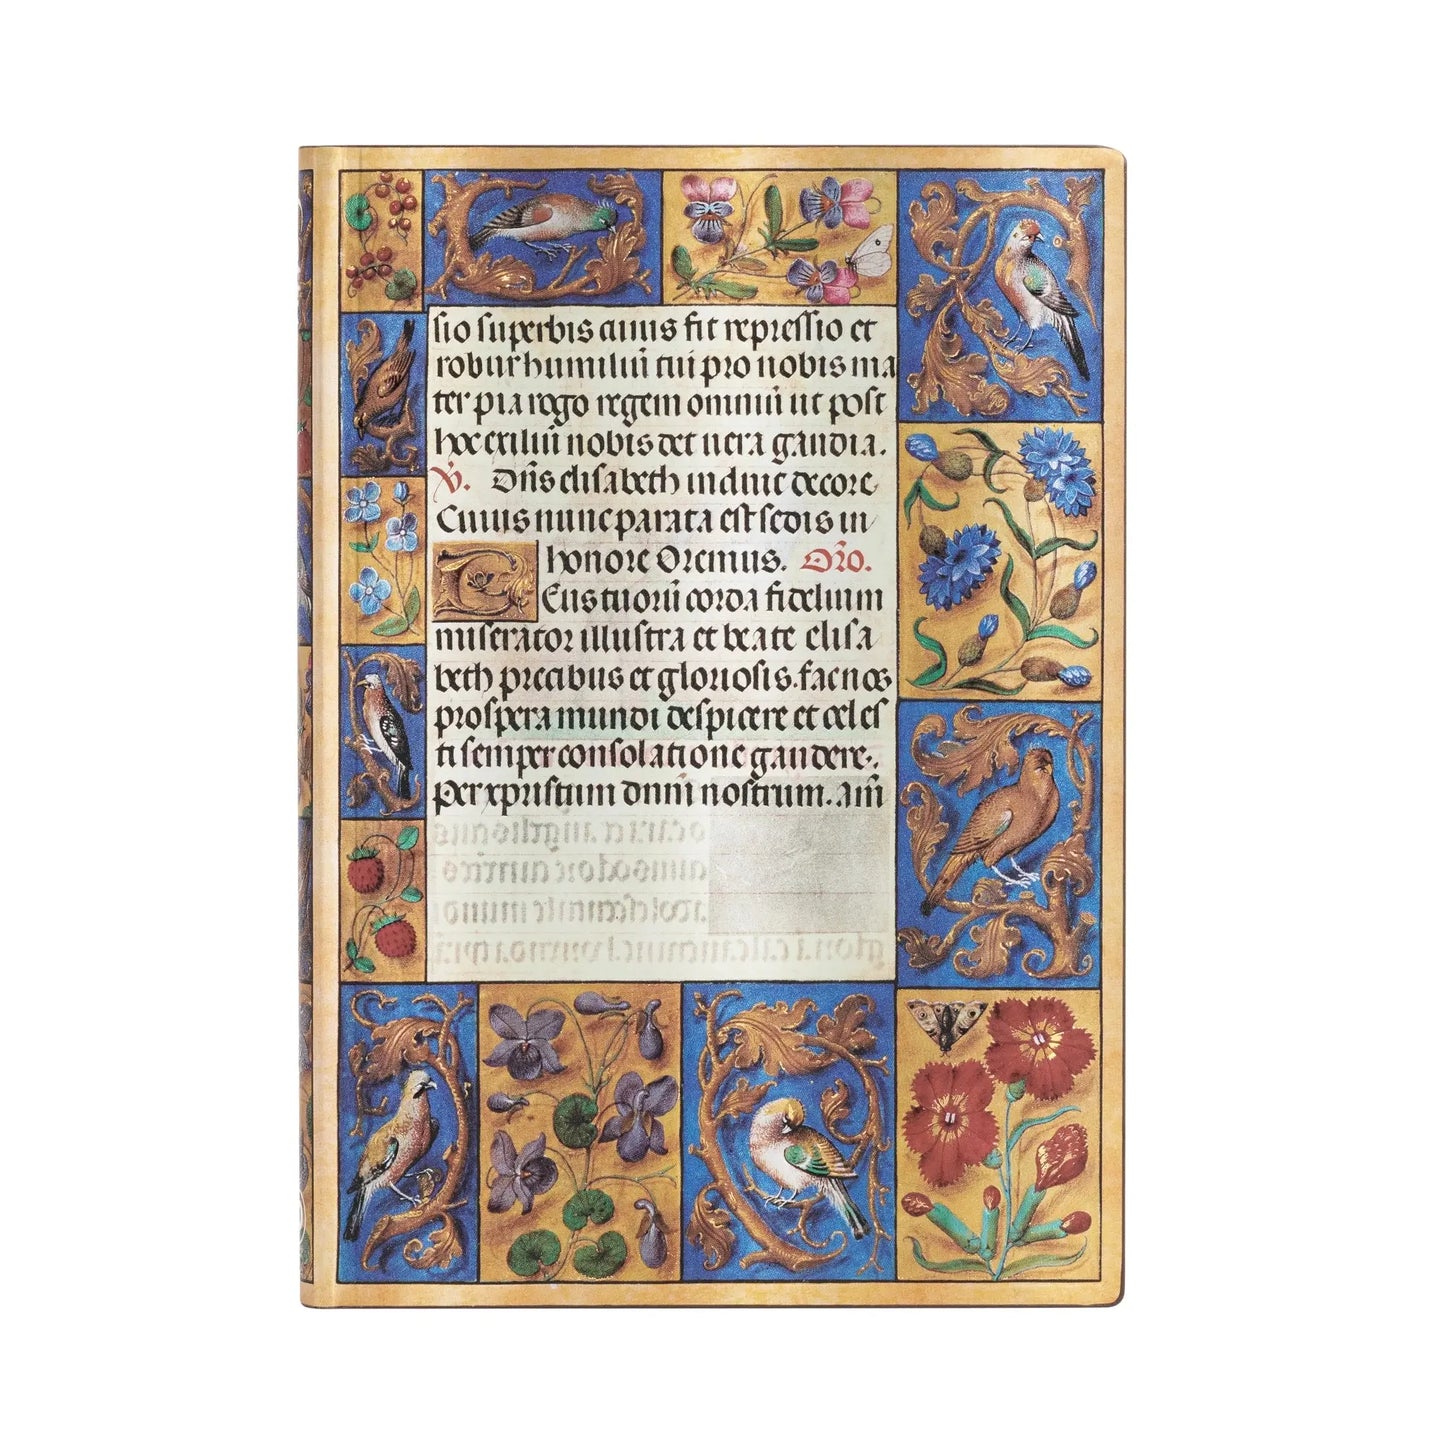 sio superbis cuius fit repressio et
robur humiliũ tui pro nobis ma
ter pia rogo regem omniũ ut post
hoc exiliũ nobis det uera gaudia.
℣. Dñs elisabeth induit decore
Cuius nunc parata est sedis in
honore Oremus. Orõ.
Deus tuorũ corda fidelium
miserator illustra et beate elisa
beth precibus et gloriosis. fac nos
prospera mundi despicere et celes
ti semper consolatione gaudere.
Per xpristum dnm̃ nostrum. Am̃